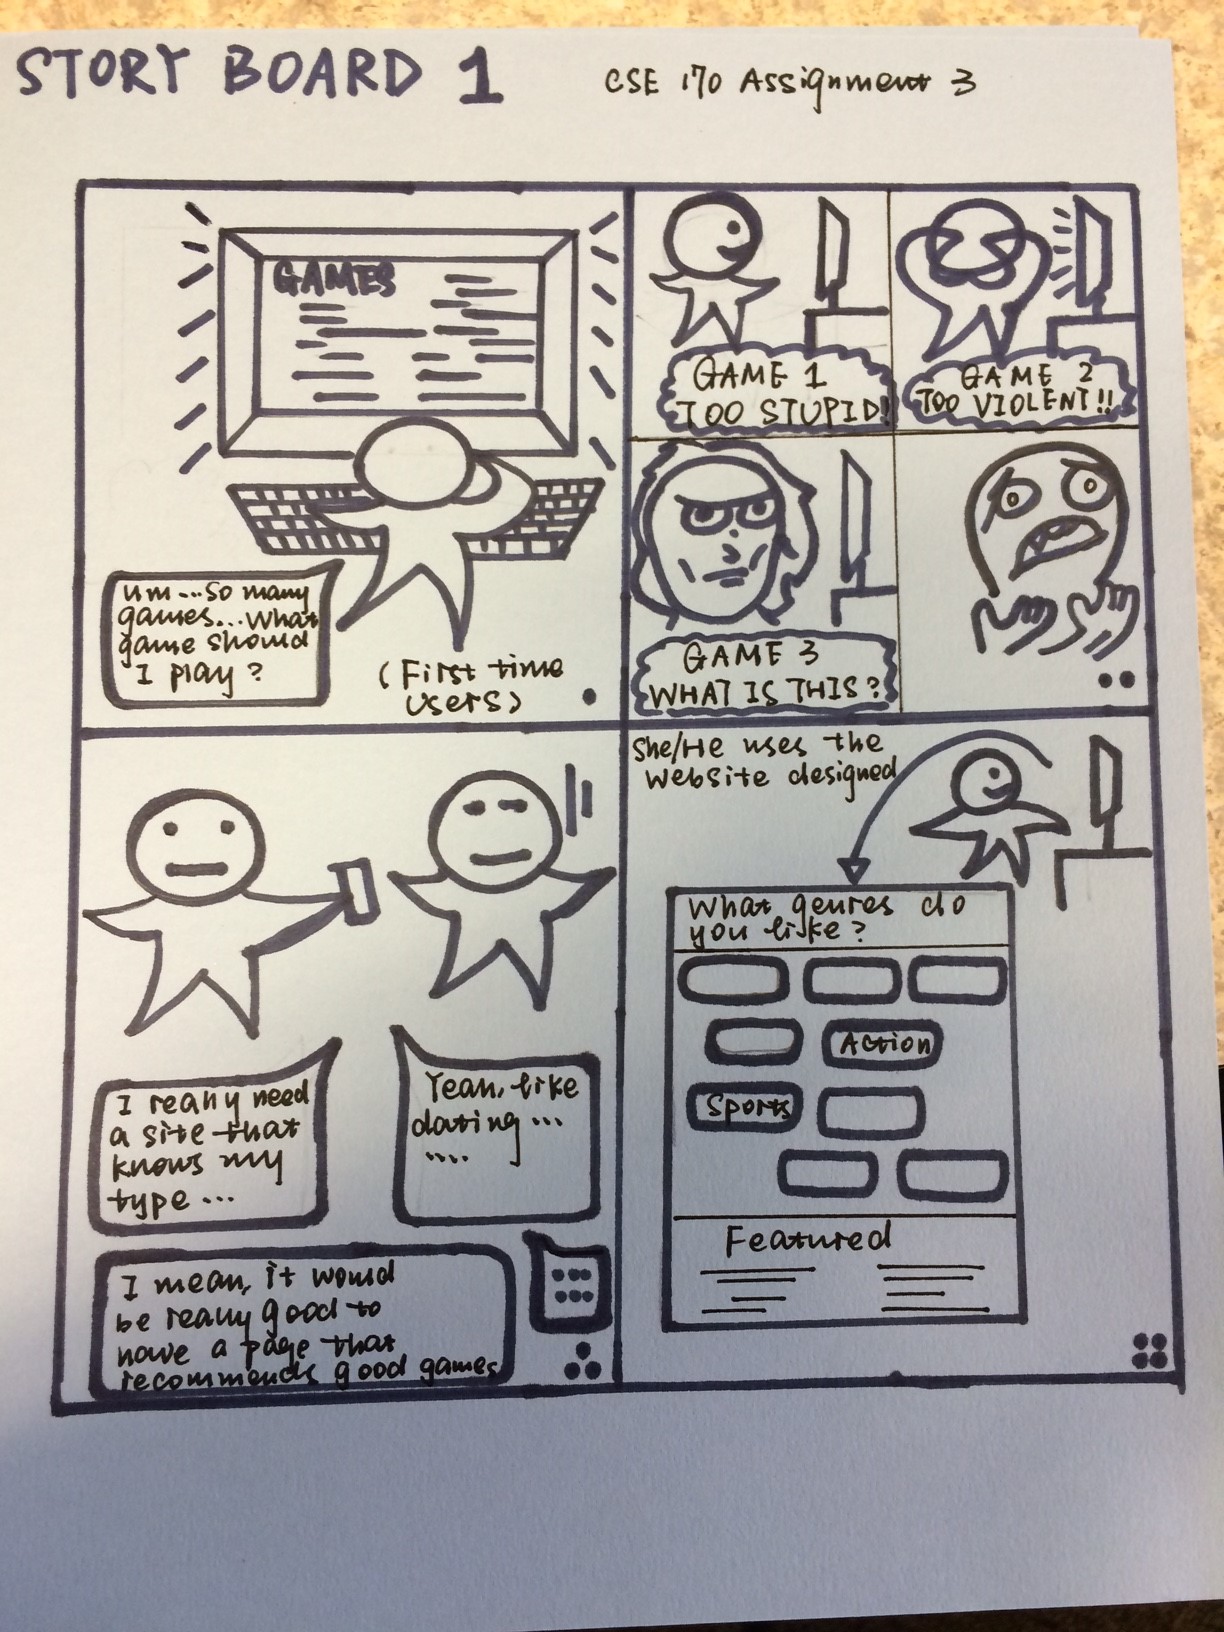 STORY BOARD 1
CSE 170 Assignment 3
GAMES
um...so many
games...what
game should
I play?
(First time
users)
GAME 1
TOO STUPID!
GAME 2
TOO VIOLENT!!
GAME 3
WHAT IS THIS?
I really need
a site that
knows my
type...
Yeah, like
dating...
....
I mean, it would
be really good to
have a page that
recommends good games
She/He uses the
website designed
What genres do
you like?
Action
Sports
Featured